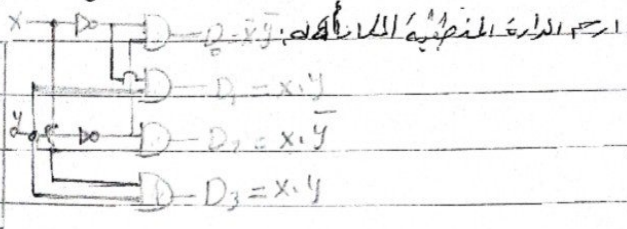 ارسم الدارة المنطقية الملائمة:
X D₀ = x̄.ȳ
D₁ = x.y
y D₂ = x.ȳ
D₃ = x.y